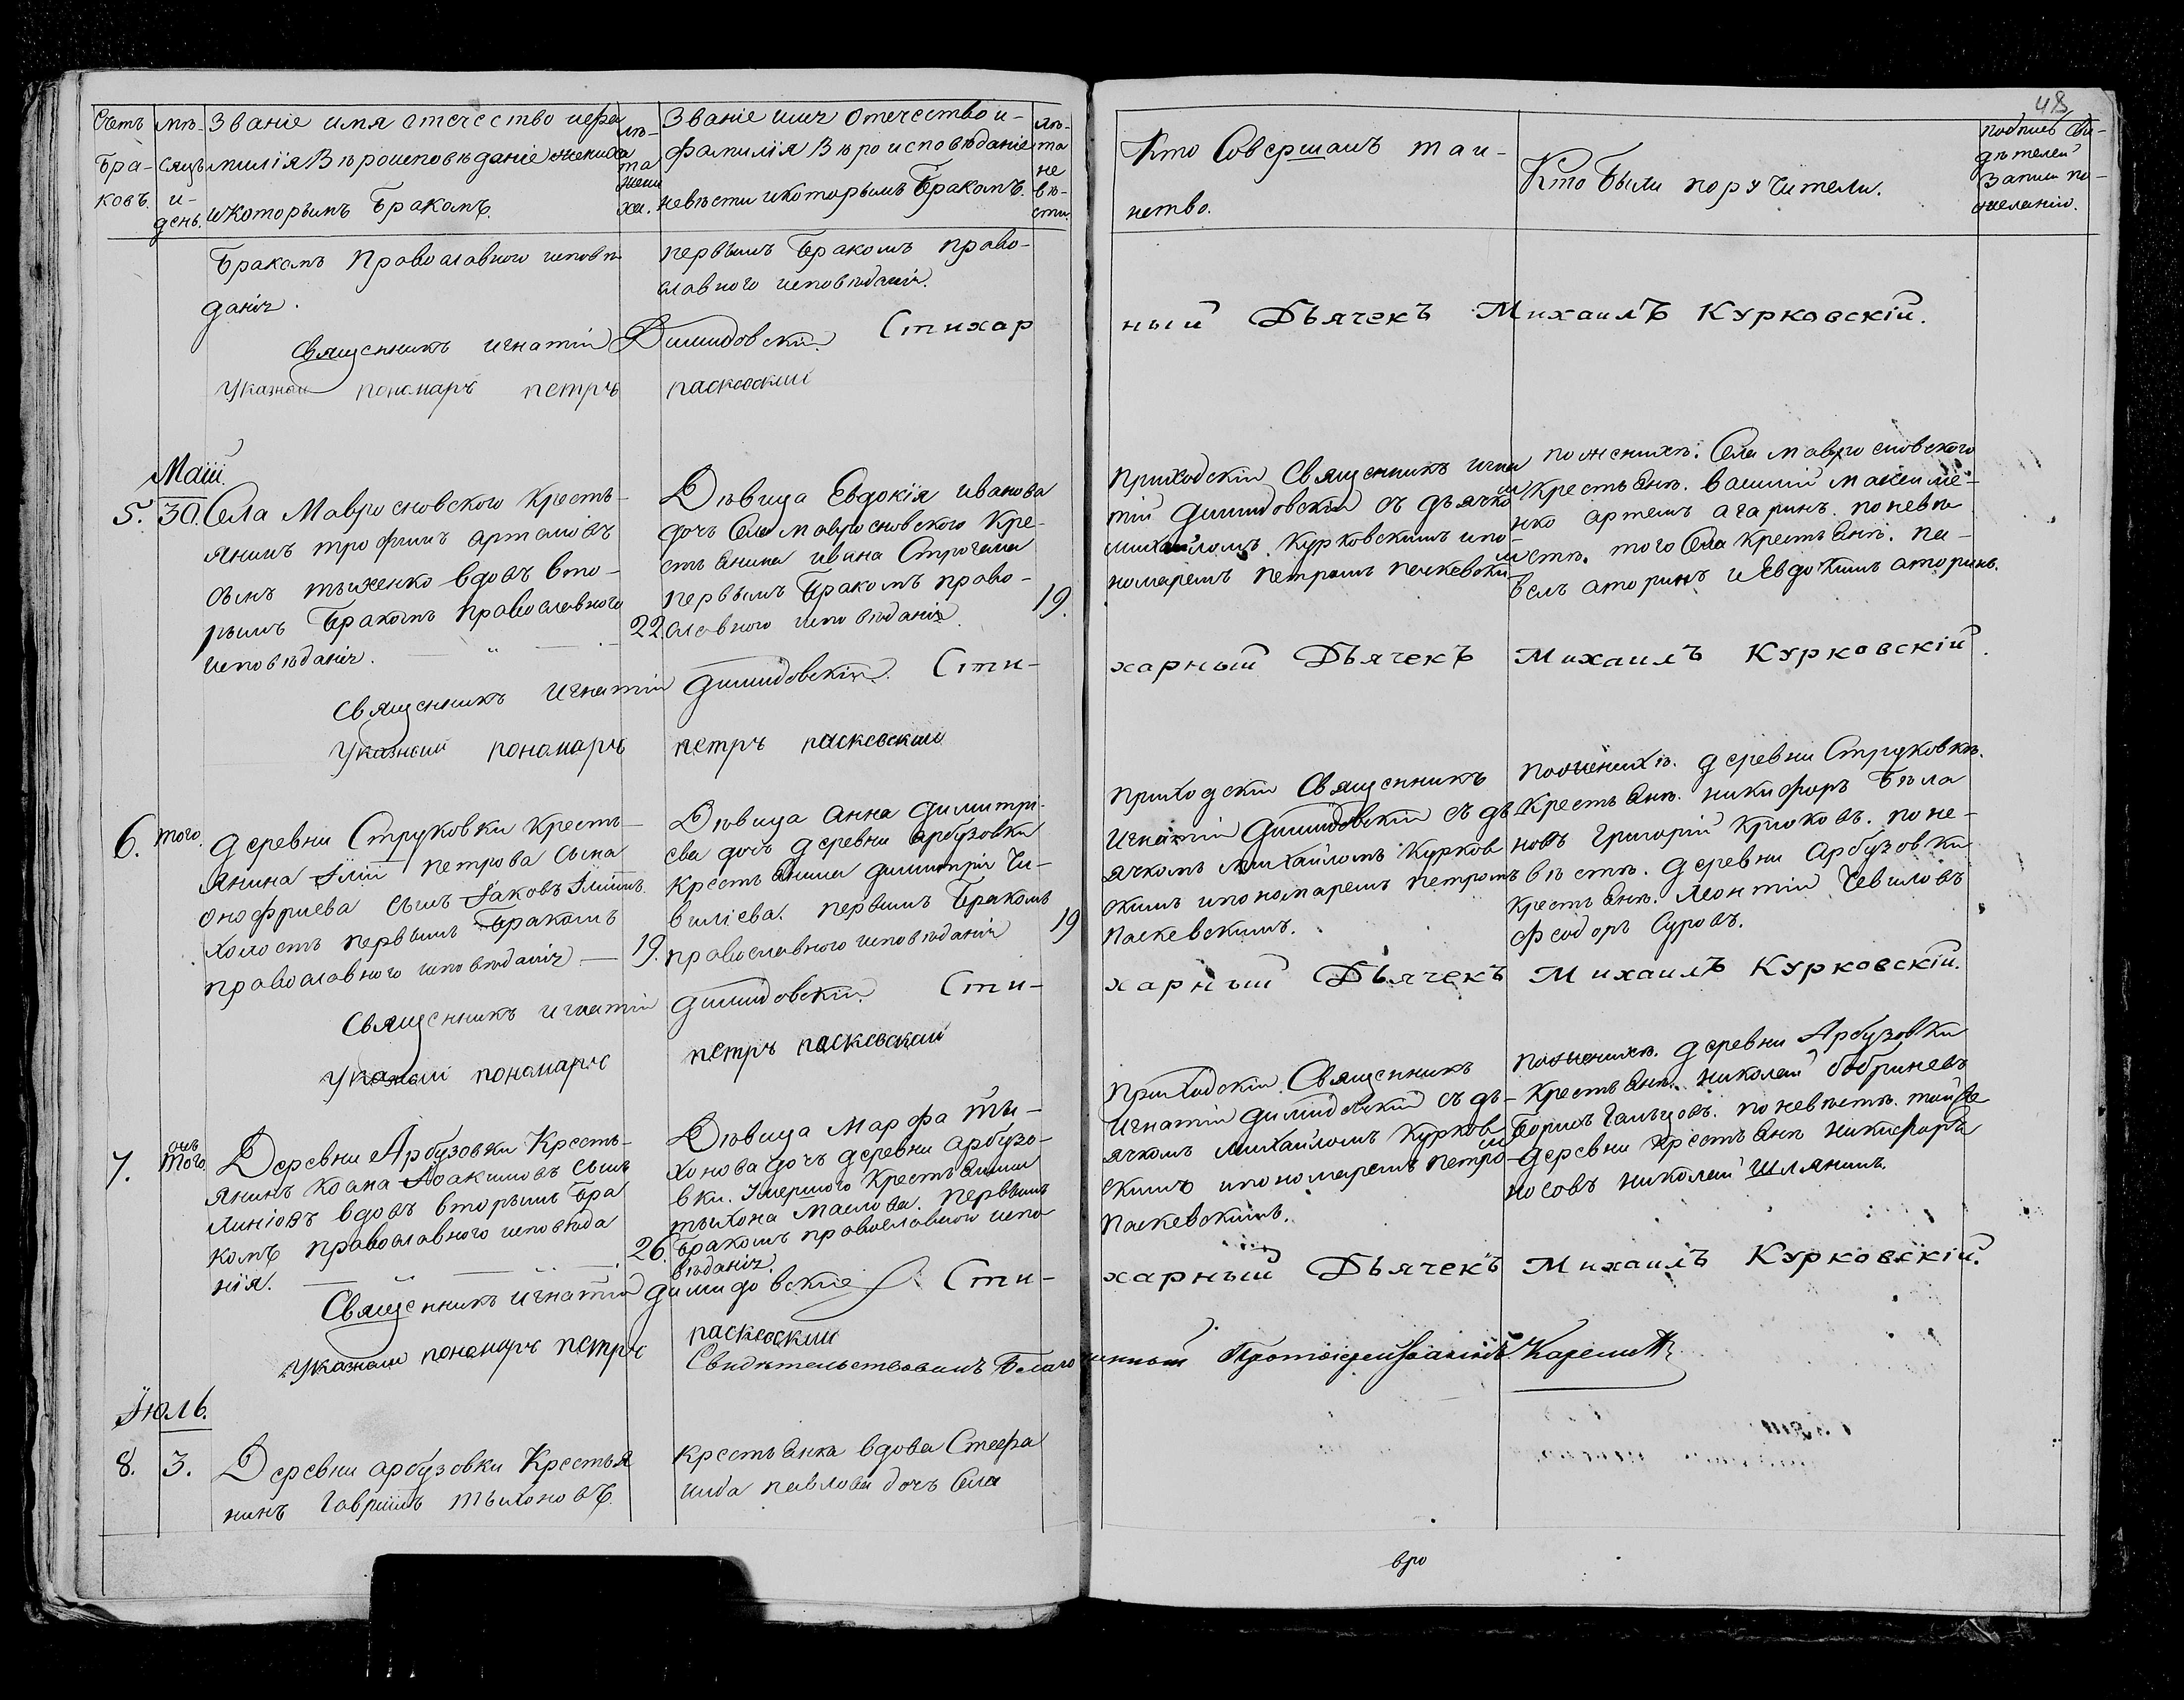 48
Счетъ Бра-ковъ.
мѣ-сяцъ и-день.
Званіе имя отечество ифа
милія Вѣроисповѣданіе жениха
икоторымъ Бракомъ.
лѣ-та жени ха.
Званіе имя отечество и-
фамилія Вѣроисповѣданіе
невѣсти икоторымъ Бракомъ.
лѣ-та не вѣ-сти.
Кто Совершалъ таи-
нство.
Кто Были поручители.
подпись Сви-
дѣтелей
Записи по-
желанію.
Бракомъ Православного исповѣ
данія.
первымъ Бракомъ право-
славного исповѣданія.
Священникъ Игнатій Димидовскій. Стихар
ный Дьячекъ Михаилъ Курковскій.
Указный пономарь петръ паскевский
Маій.
5. 30. Села Мавро сновского Кресть-
янинъ трофимъ артамовъ
сынъ тыженко вдовъ вто-
рымъ Бракомъ православного
исповѣданія.
22.
Дѣвица Евдокія иванова
дочь Села мавро сновского Кре-
стьянина ивана
первымъ Бракомъ право-
славного исповѣданія.
19.
приходскій Священникъ игна
тій димидовскій съ дьячко
михайломъ. Курковскимъ ипо-
номаремъ петромъ паскевски
по женихѣ. Села мавро сновского
Крестьянѣ. василий максиме-
нко артемъ агаринъ. поневѣ
стѣ. того Села крестьянѣ. па-
велъ аторинъ иЕвдокимъ аторинъ.
Священникъ Игнатій димидовскій. Сти-
харный Дьячекъ Михаилъ Курковскій.
Указный пономарь петръ паскевский
6. того. деревни Струковки Кресть-
янина Іліи петрова сына
онофриева сынъ Іаковъ Іліинъ.
холостъ первымъ Бракомъ
православного исповѣданія — 19.
Дѣвица анна димитрі-
ева дочь деревни арбузовки
Крестьянина димитрія Чи-
виліева. первымъ Бракомъ
православного исповѣданія
19
приходскій Священникъ
Игнатій Димидовскій съ дь
ячкомъ михайломъ Курков
скимъ ипономаремъ петромъ
паскевскимъ.
по женихѣ. деревни Струковки.
Крестьянѣ. никифоръ Бѣла
новъ Григорій Крюковъ. поне-
вѣстѣ. деревни Арбузовки
крестьянѣ. Леонтій Чевиловъ
Феодоръ Суровъ.
Священникъ игнатій димидовскій. Сти-
харный Дьячекъ Михаилъ Курковскій.
Указный пономарь петръ паскевский
7. того. Деревни Арбузовки Кресть-
янинъ Іоанъ Иоакимовъ сынъ
вдовъ вторымъ Бра
комъ православного исповѣда
нія.
26.
Дѣвица Марфа ты-
хонова дочь деревни арбузо-
вки. Умершого Крестьянина
тыхона маслова. первымъ
Бракомъ православного испо
вѣданія.
Приходскій Священникъ
Игнатій димидовскій съ дь-
ячкомъ михайломъ Курков
скимъ ипономаремъ петро
паскевскимъ.
по женихѣ. деревни Арбузовки
Крестьянѣ. николай бобриневъ
Борисъ Гальцовъ. поневѣстѣ. той же
деревни крестьянѣ никифоръ
носовъ николай шлянинъ.
Священникъ игнатій димидовскіе Сти-
харный Дьячекъ Михаилъ Курковскій.
Указный пономарь петръ паскевский
Свидѣтельствовалъ Благочинный Протоіерей Іоаннъ
Іюль.
8. 3. Деревни арбузовки Крестья
нинъ Гавріилъ тыхоновъ
крестьянка вдова Стефа
нида павлова дочь Села
вро